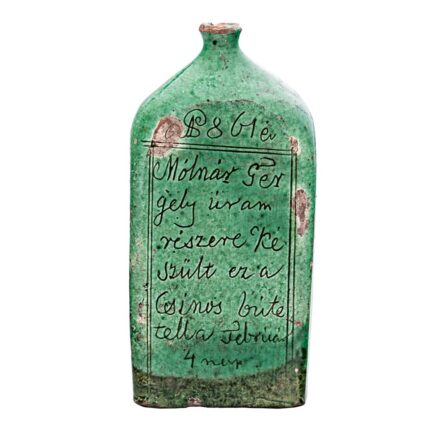 1861 év
Mólnár Ger
gely úram
részere Ké
szült ez a
Csinos búte
tella Februári
4 nap